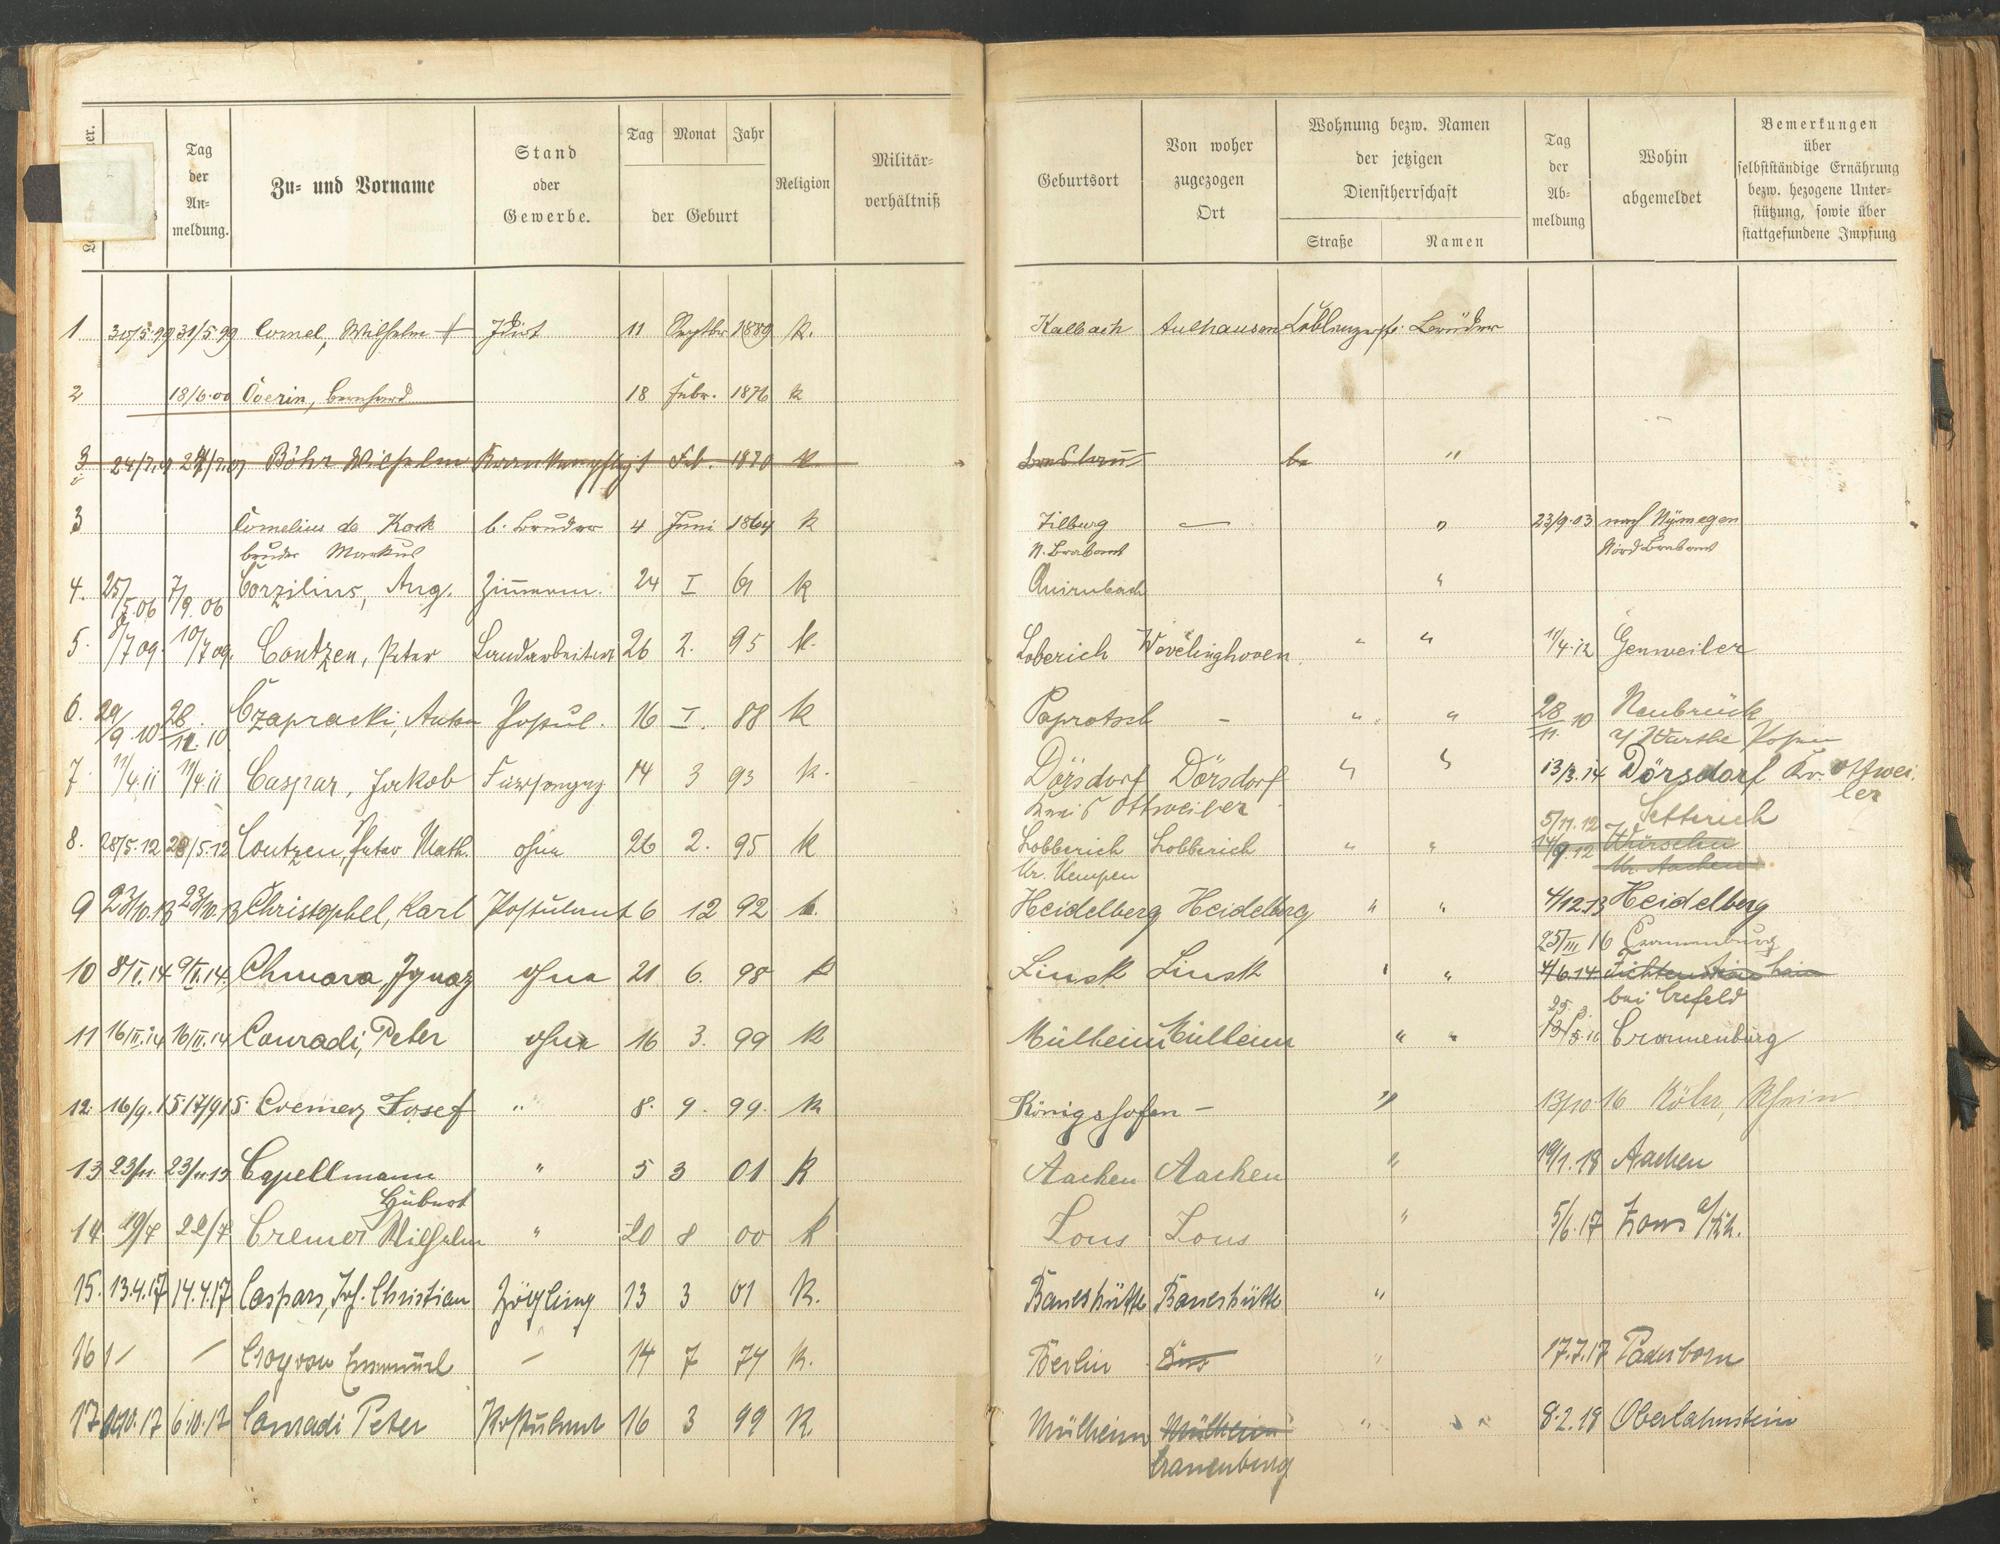 Tag der Anmeldung.
Zu- und Vorname
Stand oder Gewerbe.
Tag Monat Jahr
der Geburt
Religion
Militärverhältniß
Geburtsort
Von woher zugezogen Ort
Wohnung bezw. Namen der jetzigen Dienstherrschaft
Straße Namen
Tag der Abmeldung
Wohin abgemeldet
Bemerkungen über selbstständige Ernährung bezw. bezogene Unterstützung, sowie über stattgefundene Impfung
1 30/5.99 31/5.99 Cornel, Wilhelm † Idiot 11 Septbr 1889 K. Kalbach Aulhausen Coblenzerstr. Brüder
2 18/6.00 Bernhard 18 Febr. 1876 K
3 24/7.07 Böhr Wilhelm Feb. 1870 K. "
3 Cornelius de Kock b. Bruder 4 Juni 1864 K Tilburg — " 23/9.03 nach Nymegen
bruder Markus N. Brabant Nord Brabant
4. 25/5.06 7/9.06 Corzilius, Aug. Zimmerm. 24 I 61 K Quirnbach "
5. 8/7 09. 10/7 09. Contzen, Peter Landarbeiter 26 2. 95 K. Loberich Wevelinghoven " " 11/4.12 Genweiler
6. 29/9.10 28/11.10 Czapracki, Anton Postul. 16 I. 88 K Paprotsch – " " 28/11 10 Neubrück
a/ Warthe Posen
7. 11/4.11 11/4.11 Caspar, Jakob Fürsorgezg 14 3 93 K. Dörsdorf Dörsdorf " " 13/3.14 Dörsdorf Kr. Ottweiler
Kreis Ottweiler
8. 28/5.12 28/5.12 Contzen, Peter Math. ohne 26 2. 95 K Lobberich Lobberich " " 5/11.12 Setterich
Kr. Kempen 14/9.12 Würselen
Kr. Aachen
9 23/10.13 23/10.13 Christophel, Karl Postulant 6 12 92 k. Heidelberg Heidelberg " " 4/12.13 Heidelberg
25/III 16 Crannenburg
10 8/II.14 9/II.14 Chmara, Ignaz ohne 21 6. 98 K Linsk Linsk " " 4/6.14
bei Crefeld
11 16/III.14 16/III.14 Conradi, Peter ohne 16 3. 99 K Mülheim Mülheim " " Crannenburg
12. 16/9.15 17/9 15. Cremer, Josef " 8. 9. 99. K Königshofen – " 13/10 16 Köln, Rhein
13 23/11. 23/11 15 Capellmann " 5 3 01 K Aachen Aachen " 19/1.18 Aachen
Hubert
14. 19/7 22/7 Cremer Wilhelm " 20 8 00 K Zons Zons " 5/6.17 Zons a/Rh.
15. 13.4.17 14.4.17 Caspars, Joh. Christian Zögling 13 3 01 K. "
16 1/ / Emanuel — 14 7 74 K. Berlin " 17.7.17 Paderborn
17 6.10.17 6.10.17 Conradi Peter Postulant 16 3 99 K. Mülheim Mülheim " 8.2.19 Oberlahnstein
Cranenburg